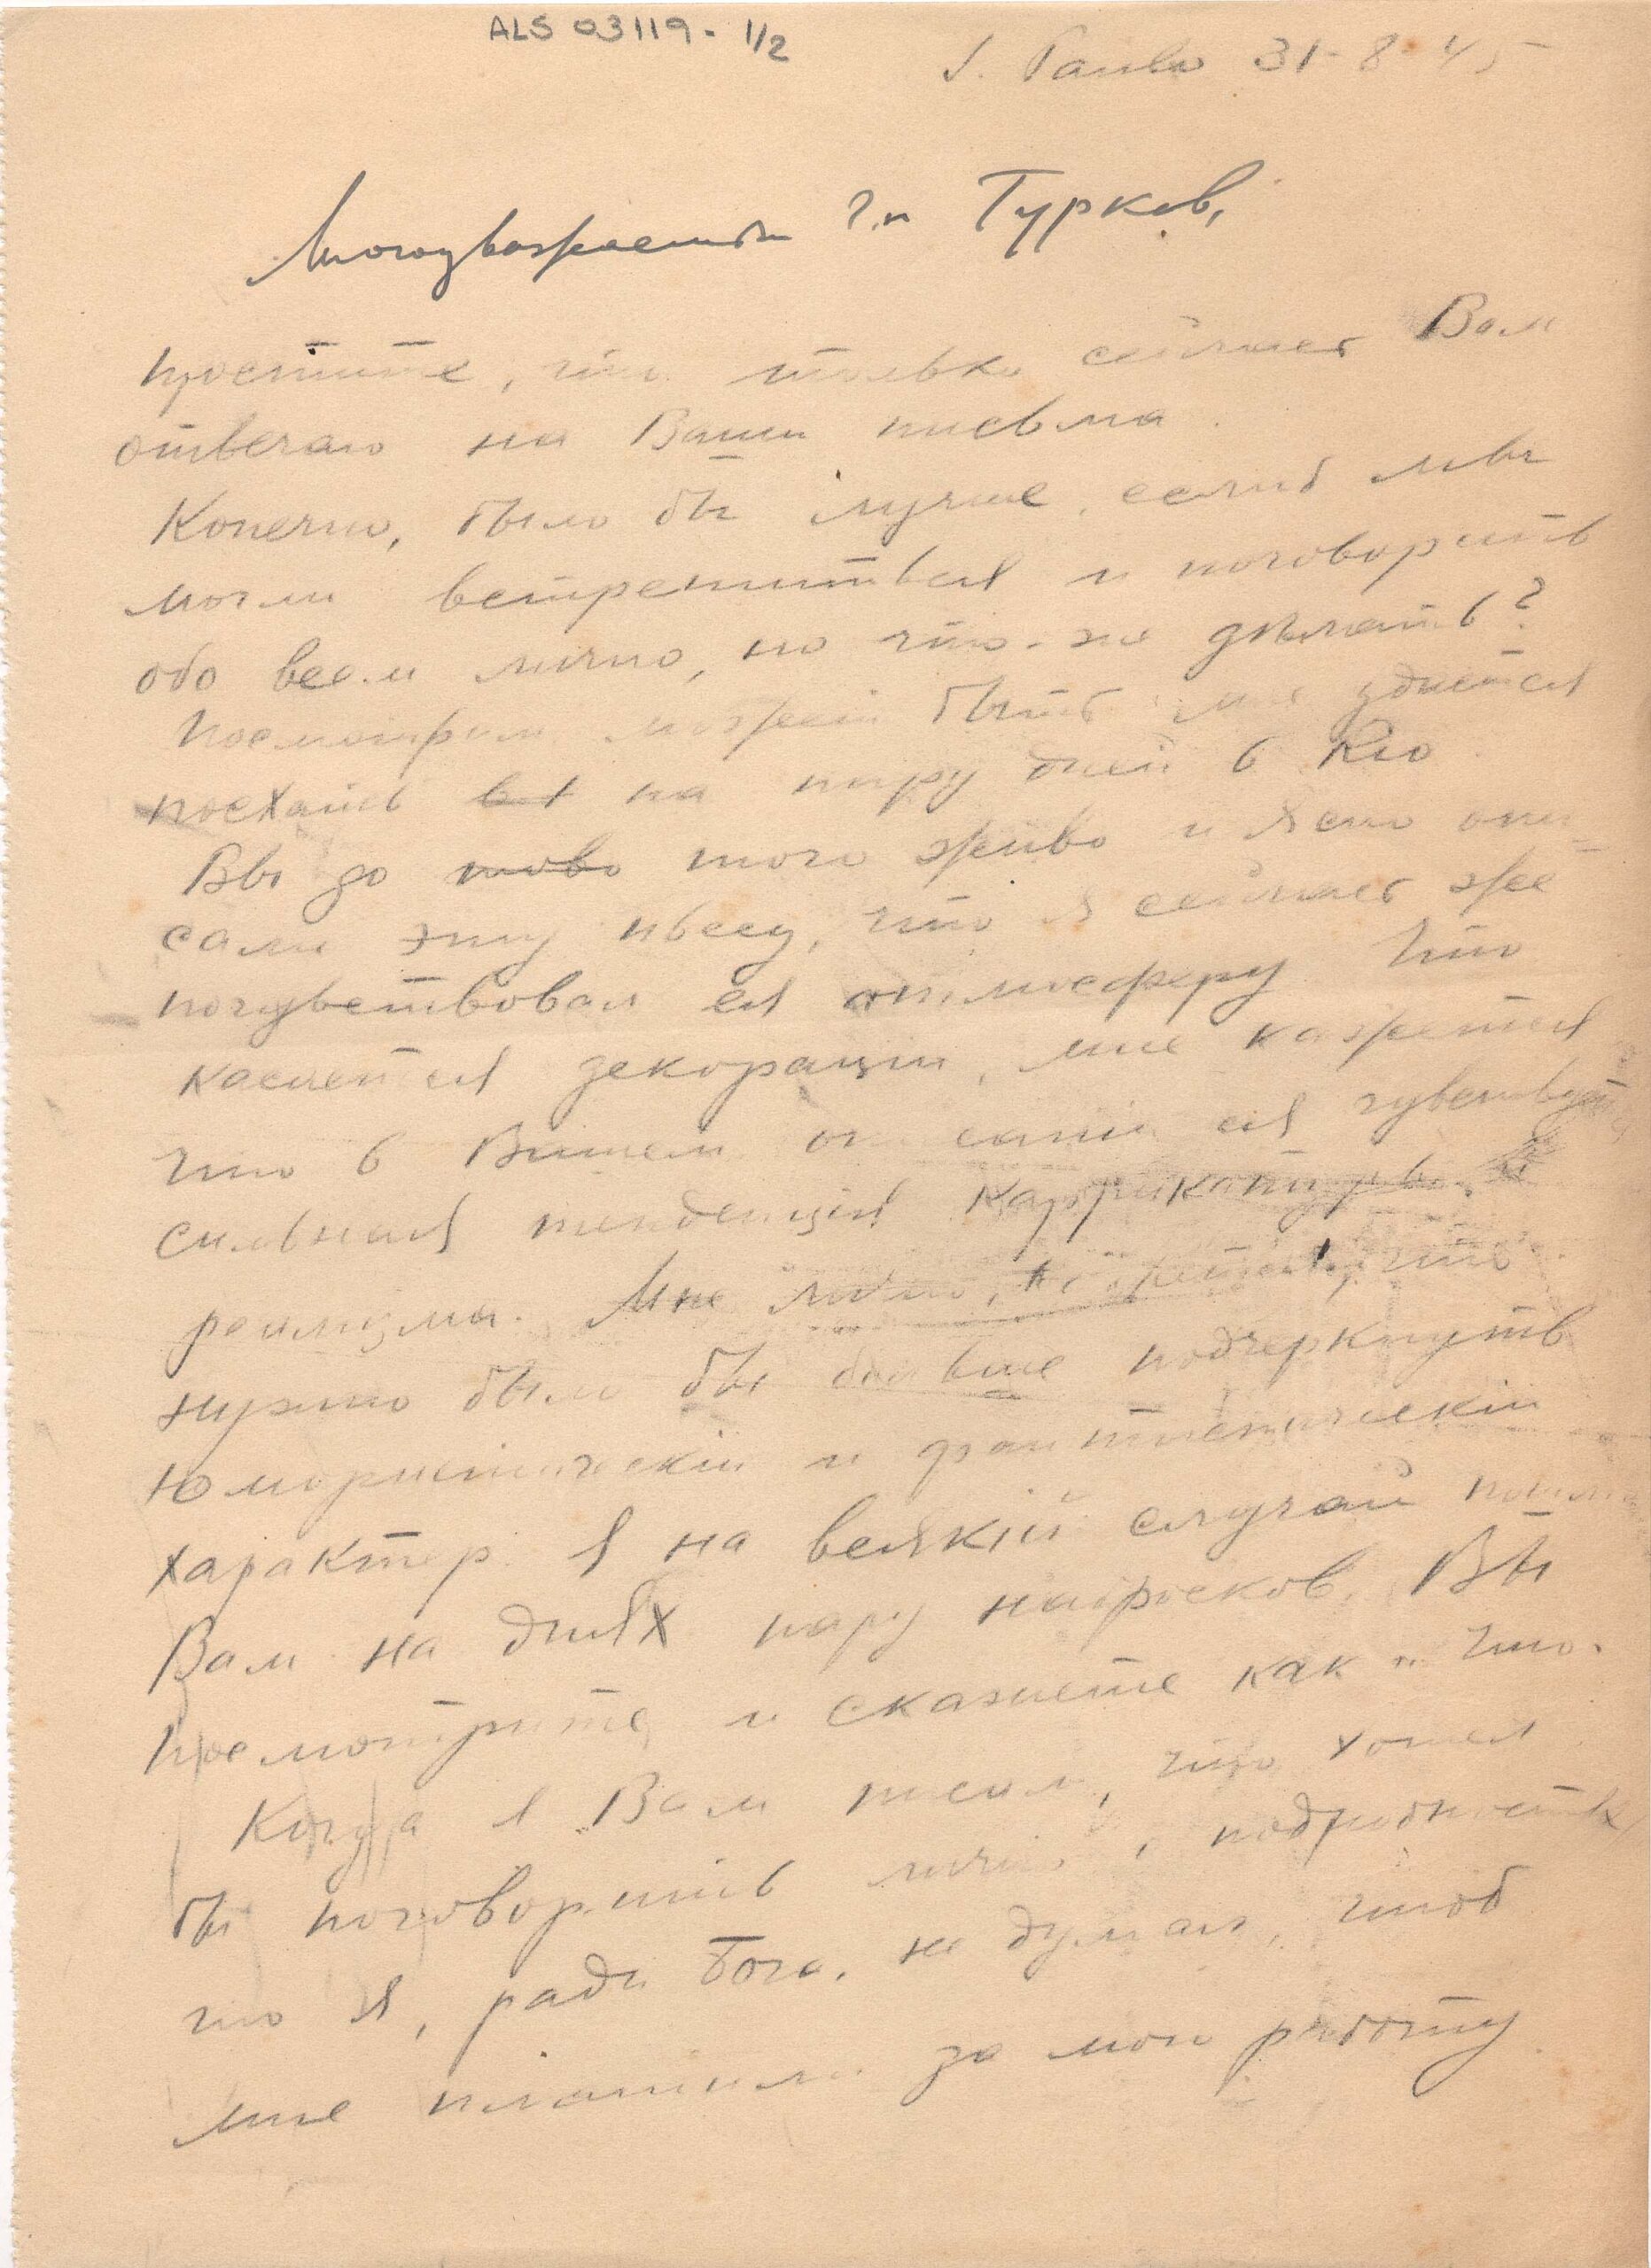 ALS 03119 - 1/2
S. Paulo 31-8-45
Многоуважаемый г.н Турков,
простите, что только сейчас Вам
отвечаю на Ваши письма.
Конечно, было бы лучше, еслиб мы
могли встретиться и поговорить
обо всем лично, но что-же дѣлать?
Посмотрим может быть мне удастся
поехать на пару дней в Rio
Вы до того живо и ясно опи-
сали эту пьесу, что я сейчас же
почувствовал ея атмосферу. Что
касается декорации, мне кажется
что в Вашем описании ея чувствуется
сильная тенденция
реализма. Мне лично, кажется, что
нужно было бы больше подчеркнуть
юмористическій и фантастическій
характер. Я на всякій случай пошлю
Вам на днях пару набросков. Вы
посмотрите и скажете как и что.
Когда я Вам писал, что хотел
бы поговорить лично, подробности
то я, ради Бога, не думал, чтоб
мне платили за мою работу.